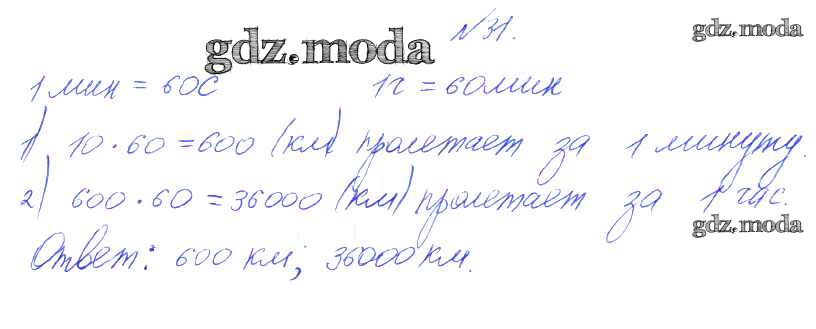 №31.
gdz.moda
gdz.moda
1 мин = 60с 1ч = 60мин
1) 10 · 60 = 600 (км) пролетает за 1 минуту.
2) 600 · 60 = 36000 (км) пролетает за 1 час.
gdz.moda
Ответ: 600 км; 36000 км.